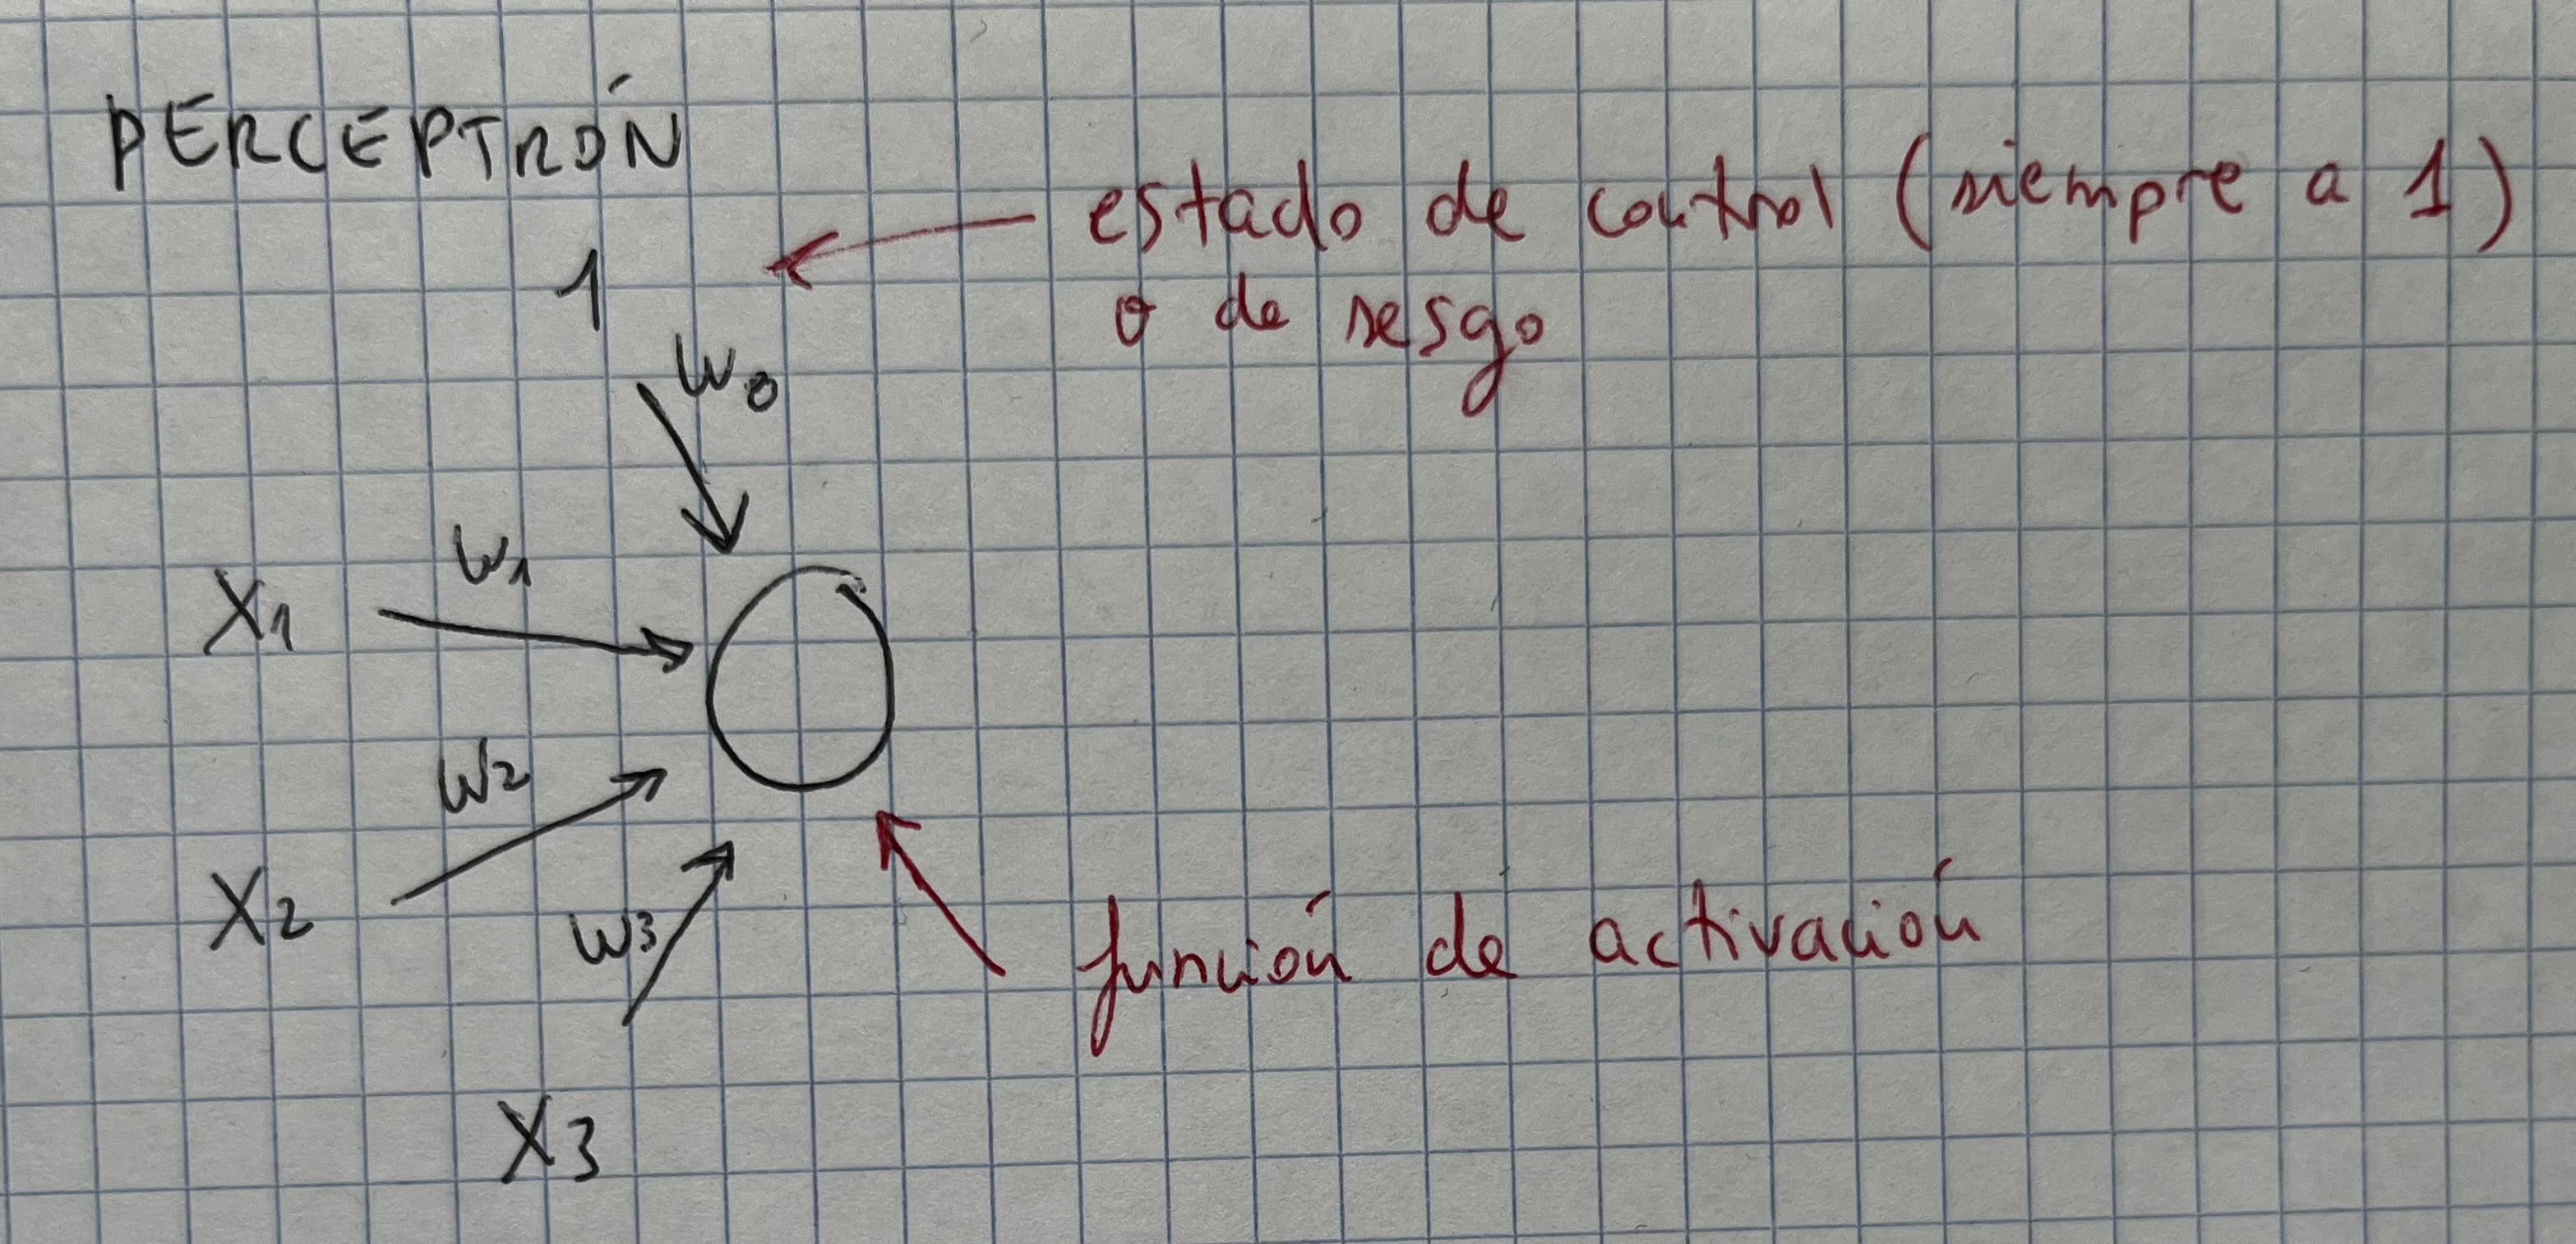 PERCEPTRÓN
1
estado de control (siempre a 1)
o de sesgo
W0
W1
X1
W2
X2
W3
función de activación
X3